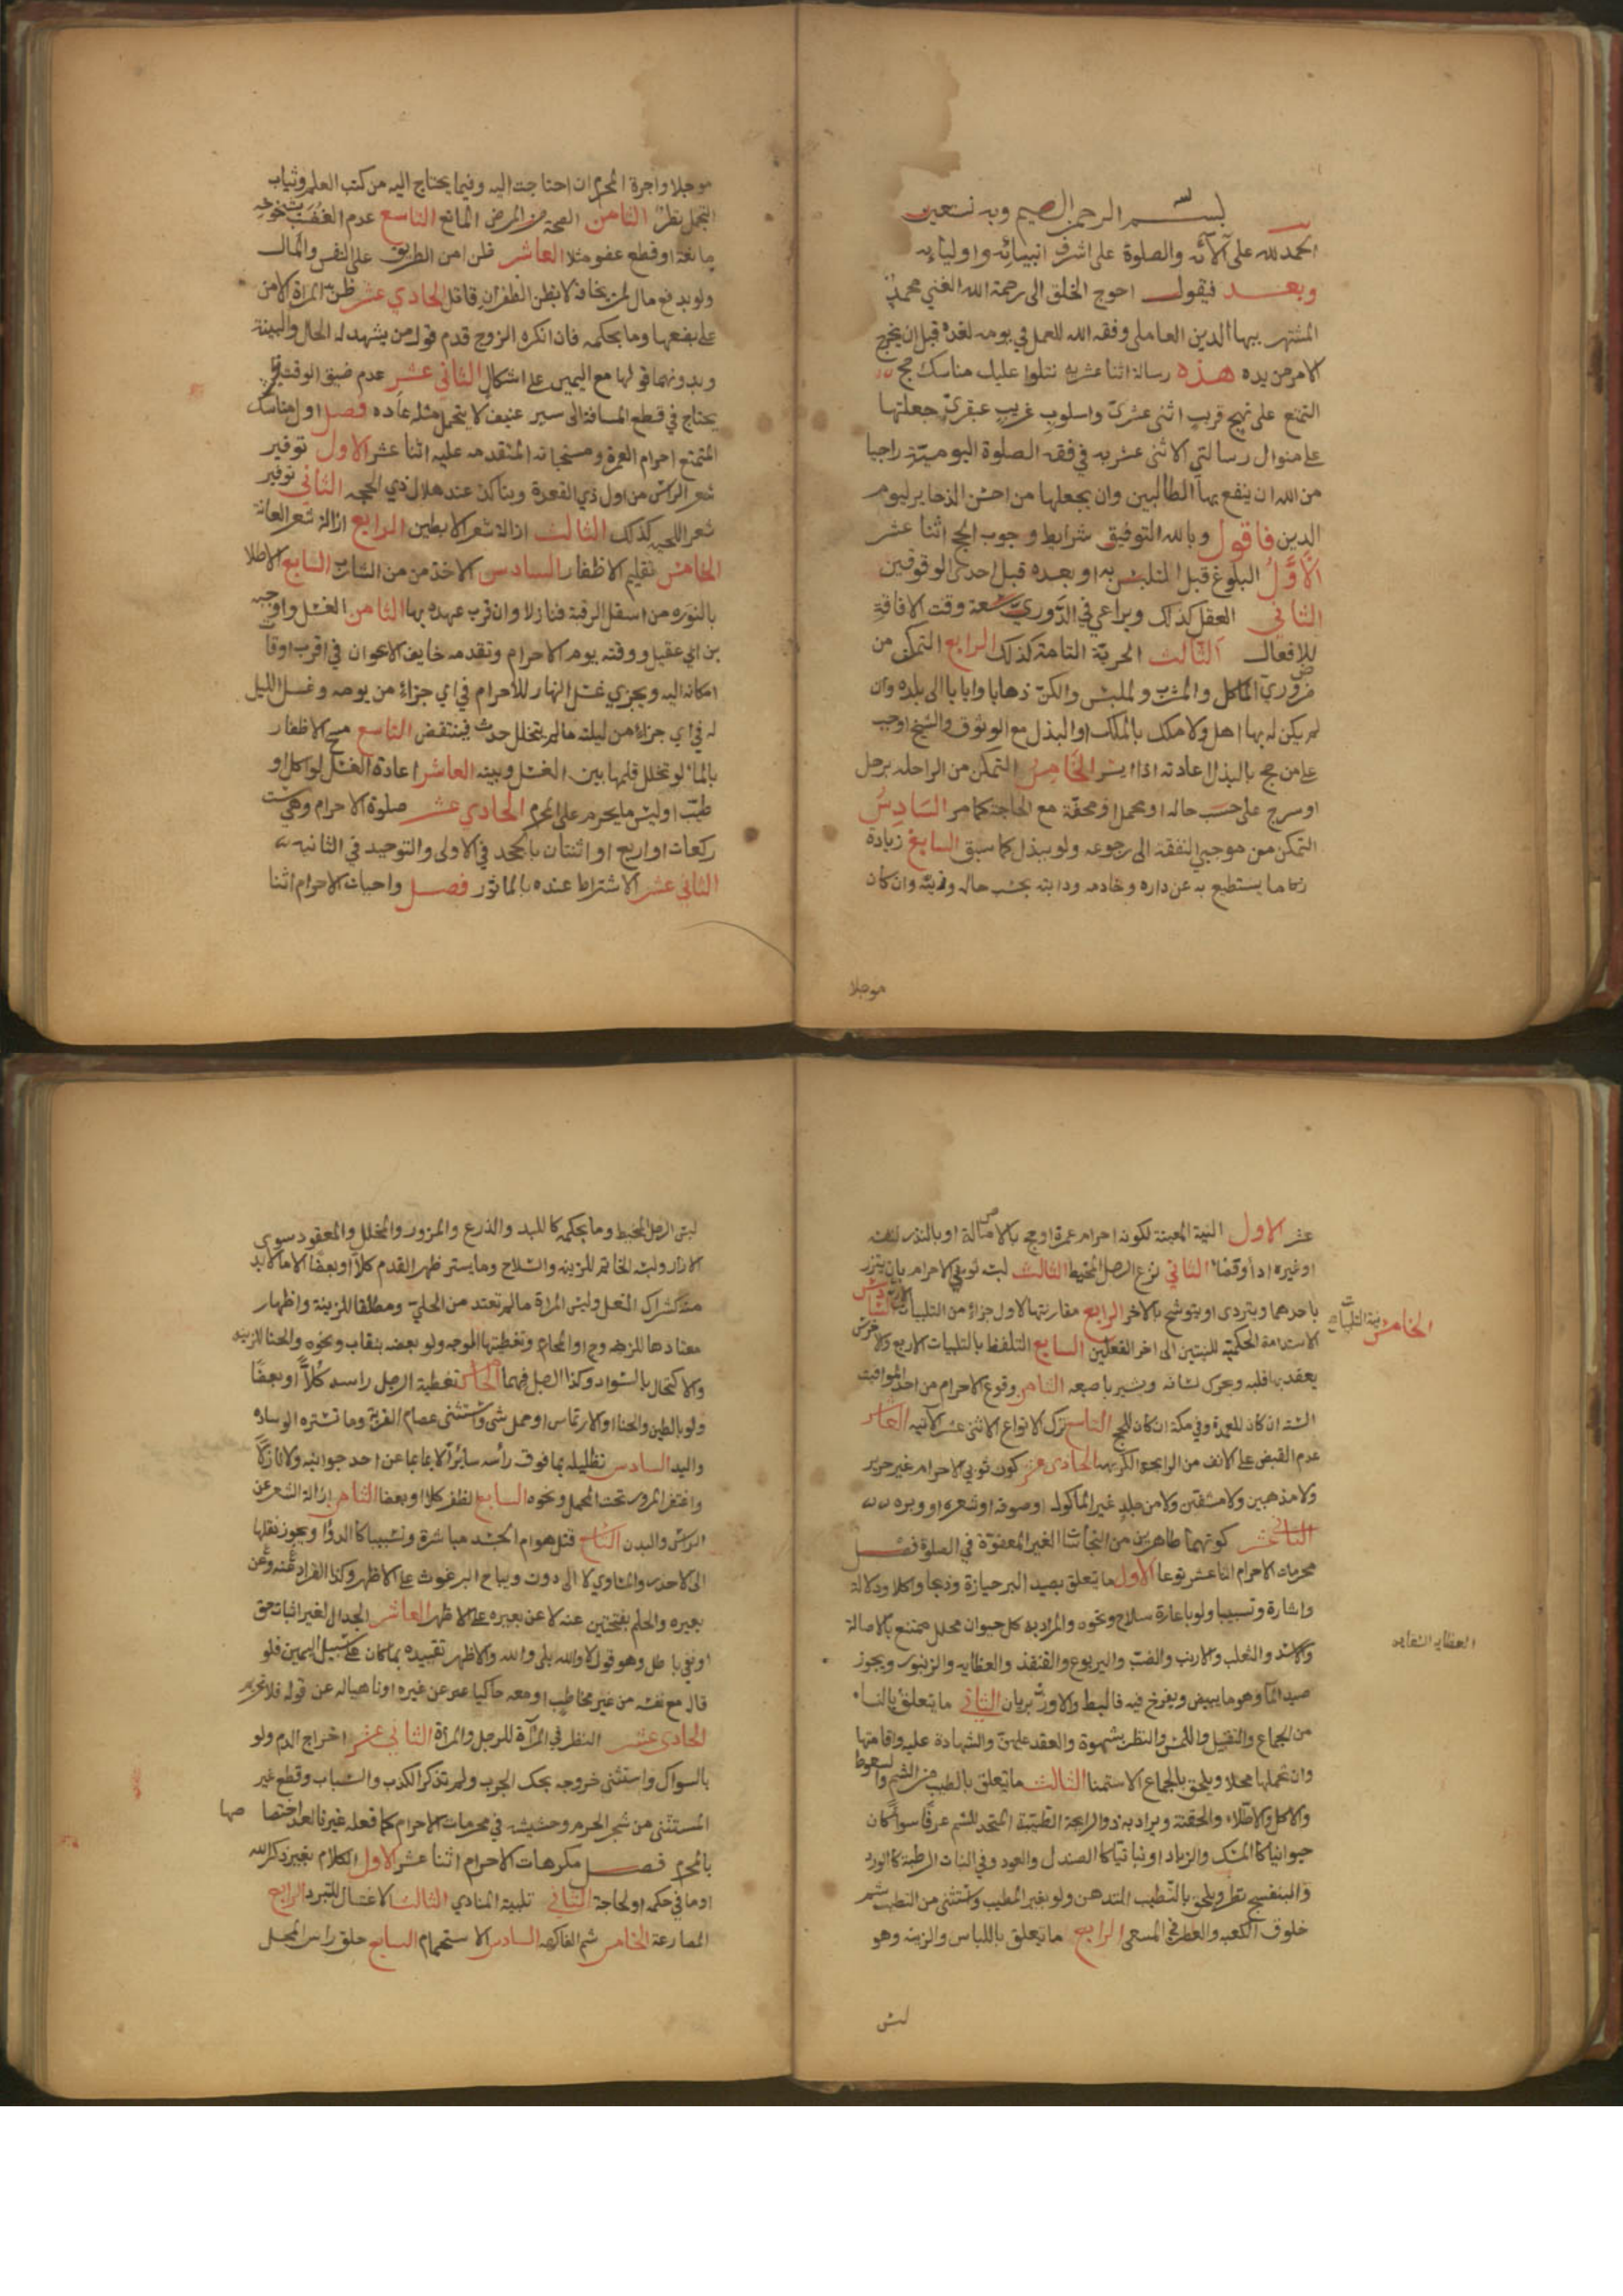 بسم الله الرحمن الرحيم وبه نستعين
الحمد لله على آلائه والصلوة على اشرف انبيائه واوليائه
وبعد فيقول احوج الخلق الى رحمة الله الغني محمد
المشتهر ببهاء الدين العاملي وفقه الله للعمل في يومه لغده قبل ان يخرج
الامر من يده هذه رسالة اثنا عشريه نتلوا عليك مناسك حج
التمتع على نهج قريب اثنى عشري واسلوب غريب عبقري جعلتها
على منوال رسالتي الاثنى عشريه في فقه الصلوة اليومية راجيا
من الله ان ينفع بها الطالبين وان يجعلها من احسن الذخاير ليوم
الدين فاقول وبالله التوفيق شرايط وجوب الحج اثنا عشر
الأول البلوغ قبل التلبس به او بعده قبل احدى الوقوفين
الثاني العقل كذلك ويراعى في الدوري سعة وقت الافاقة
للافعال الثالث الحرية التامة كذلك الرابع التمكن من
ضروري الماكل والمشرب والملبس والمسكن ذهابا وايابا الى بلده وان
لم يكن له بها اهل ولا ملك بالملك او البذل مع الوثوق والشيخ اوجب
على من حج بالبذل اعادته اذا ايسر الخامس التمكن من الراحله برحل
او سرج على حسب حاله او محمل او محفة مع الحاجة كما مر السادس
التمكن من موجبي النفقه الى رجوعه ولو ببذل كما سبق السابع زيادة
ما يستطيع به عن داره وخادمه ودابته بحسب حاله ودينه وان كان
موجلا
موجلا واجرة المحرم ان احتاجت اليه وفيما يحتاج اليه من كتب العلم وثياب
التجمل نظر الثامن الصحة من المرض المانع التاسع عدم
مانعة او قطع عضو مثلا العاشر ظن امن الطريق على النفس والمال
ولو بدفع مال لمن يخافه لا بظن الظفر ان قاتل الحادي عشر ظن المراة الامن
على بضعها وما بحكمه فان انكره الزوج قدم قول من يشهد له الحال والبينة
وبدونهما قولها مع اليمين على اشكال الثاني عشر عدم ضيق الوقت
يحتاج في قطع المسافة الى سير عنيف لا يتحمل مثله عاده فصل اول مناسك
المتمتع احرام العمرة ومستحباته المتقدمه عليه اثنا عشر الاول توفير
شعر الراس من اول ذي القعدة ويتاكد عند هلال ذي الحجه الثاني توفير
شعر اللحيه كذلك الثالث ازالة شعر الابطين الرابع ازالة شعر العانة
الخامس تقليم الاظفار السادس الاخذ من الشارب السابع الاطلا
بالنوره من اسفل الرقبة فنازلا وان قرب عهده بها الثامن الغسل واوجبه
بن ابي عقيل ووقته يوم الاحرام وتقدمه خايف الاعوان في اقرب اوقات
امكانه اليه ويجزي غسل النهار للاحرام في اي جزاء من يومه وغسل الليل
له في اي جزاء من ليلته ما لم يتخلل حدث فينتقض التاسع مسح الاظفار
بالماء لو تخلل قلمها بين الغسل وبينه العاشر اعادة الغسل لو اكل او
طيب او لبس ما يحرم على المحرم الحادي عشر صلوة الاحرام وهي ست
ركعات او اربع او اثنتان بالجحد في الاولى والتوحيد في الثانيه
الثاني عشر الاشتراط عنده بالماثور فصل واجبات الاحرام اثنا
عشر الاول النية المعينة لكونه احرام عمرة او حج بالاصالة او بالنذر
او غيره اداء وقضاء الثاني نزع الرجل المخيط الثالث لبس ثوبي الاحرام بان يتزر
باحدهما ويتردى او يتوشح بالاخر الرابع مقارنتها لاول جزاء من التلبيات الاربع السادس
الخامس نية التلبيات
الاستدامة الحكمية للنيتين الى اخر الفعلين السابع التلفظ بالتلبيات الاربع والاخرس
يعقد بها قلبه ويحرك لسانه ويشير باصبعه الثامن وقوع الاحرام من احد المواقيت
الستة ان كان للعمرة وفي مكة ان كان للحج التاسع ترك الانواع الاثنى عشر الآتيه العاشر
عدم القبض على الانف من الرايحة الكريهه الحادي عشر كون ثوبي الاحرام غير حرير
ولا مذهبين ولا من جلد غير الماكول او صوفه او شعره او وبره
الثاني عشر كونهما طاهرين من النجاسات الغير المعفوة في الصلوة فصل
محرمات الاحرام اثنا عشر نوعا الاول ما يتعلق بصيد البر حيازة وذبحا واكلا ودلالة
واشارة وتسبيبا ولو باعارة سلاح ونحوه والمراد به كل حيوان محلل ممتنع بالاصالة
والاسد والثعلب والارنب والضب واليربوع والقنفذ والعظايه والزنبور ويجوز
صيد الماء وهو ما يبيض ويفرخ فيه فالبط والاوز بريان الثاني ما يتعلق بالنساء
من الجماع والتقبيل واللمس والنظر بشهوة والعقد عليهن والشهادة عليه واقامتها
وان تحملها محلا ويلحق بالجماع الاستمناء الثالث ما يتعلق بالطيب من الشم والسعوط
والاكل والاطلاء والحقنة ويراد به ذو الرايحة الطيبة المتخذ للشم عرفا سواء كان
حيوانيا كالمسك والزباد او نباتيا كالصندل والعود وفي النبات الرطبة كالورد
والبنفسج نظر ويلحق بالتطيب التدهن ولو بغير المطيب ويستثنى من التطيب شم
خلوق الكعبه والعطر في المسعى الرابع ما يتعلق باللباس والزينه وهو
لبس
لبس الرجل المخيط وما بحكمه كاللبد والدرع والمزور والمخلل والمعقود سوى
الازار ولبسه الخاتم للزينه والسلاح وما يستر ظهر القدم كلا او بعضا الا ما لا بد
منه كشراك النعل ولبس المراة ما لم تعتد من الحلي ومطلقا للزينة واظهار
معتادها للزوج او المحارم وتغطيتها الوجه ولو بعضه بنقاب ونحوه والحنا للزينه
والاكتحال بالسواد وكذا الرجل فيهما الخامس تغطية الرجل راسه كلا او بعضا
ولو بالطين والحناء او الارتماس او حمل شئ ويستثنى عصام القربة وما تستره الوساده
واليد السادس تظليله بما فوق راسه سائرا لا بما عن احد جوانبه ولا نازلا
واغتفر المرور تحت المحمل ونحوه السابع الظفر كلا او بعضا الثامن ازالة الشعر عن
الراس والبدن التاسع قتل هوام الجسد مباشرة وتسبيبا كالدواء ويجوز نقلها
الى الاحذر والمساوي لا الى دون ويباح البرغوث على الاظهر وكذا القراد عنه وعن
بعيره والحلم بفتحتين عنه لا عن بعيره على الاظهر العاشر الجدال لغير اثبات حق
ونفي باطل وهو قول لا والله بلى والله والاظهر تقييده بما كان على سبيل اليمين فلو
قال مع نفسه من غير مخاطب او معه حاكيا عن غيره او ناهيا له عن قوله فلا تحريم
الحادي عشر النظر في المرآة للرجل والمراة الثاني عشر اخراج الدم ولو
بالسواك واستثنى خروجه بحك الجرب ولم تذكر الكذب والسباب وقطع غير
المستثنى من شجر الحرم وحشيشه في محرمات الاحرام كما فعله غيرنا لعدم اختصاصها
بالمحرم فصل مكرهات الاحرام اثنا عشر الاول الكلام بغير ذكر الله
او ما في حكمه او لحاجة الثاني تلبية المنادي الثالث الاغتسال للتبرد الرابع
المصارعة الخامس شم الفاكهه السادس الاستحمام السابع حلق راس المحل